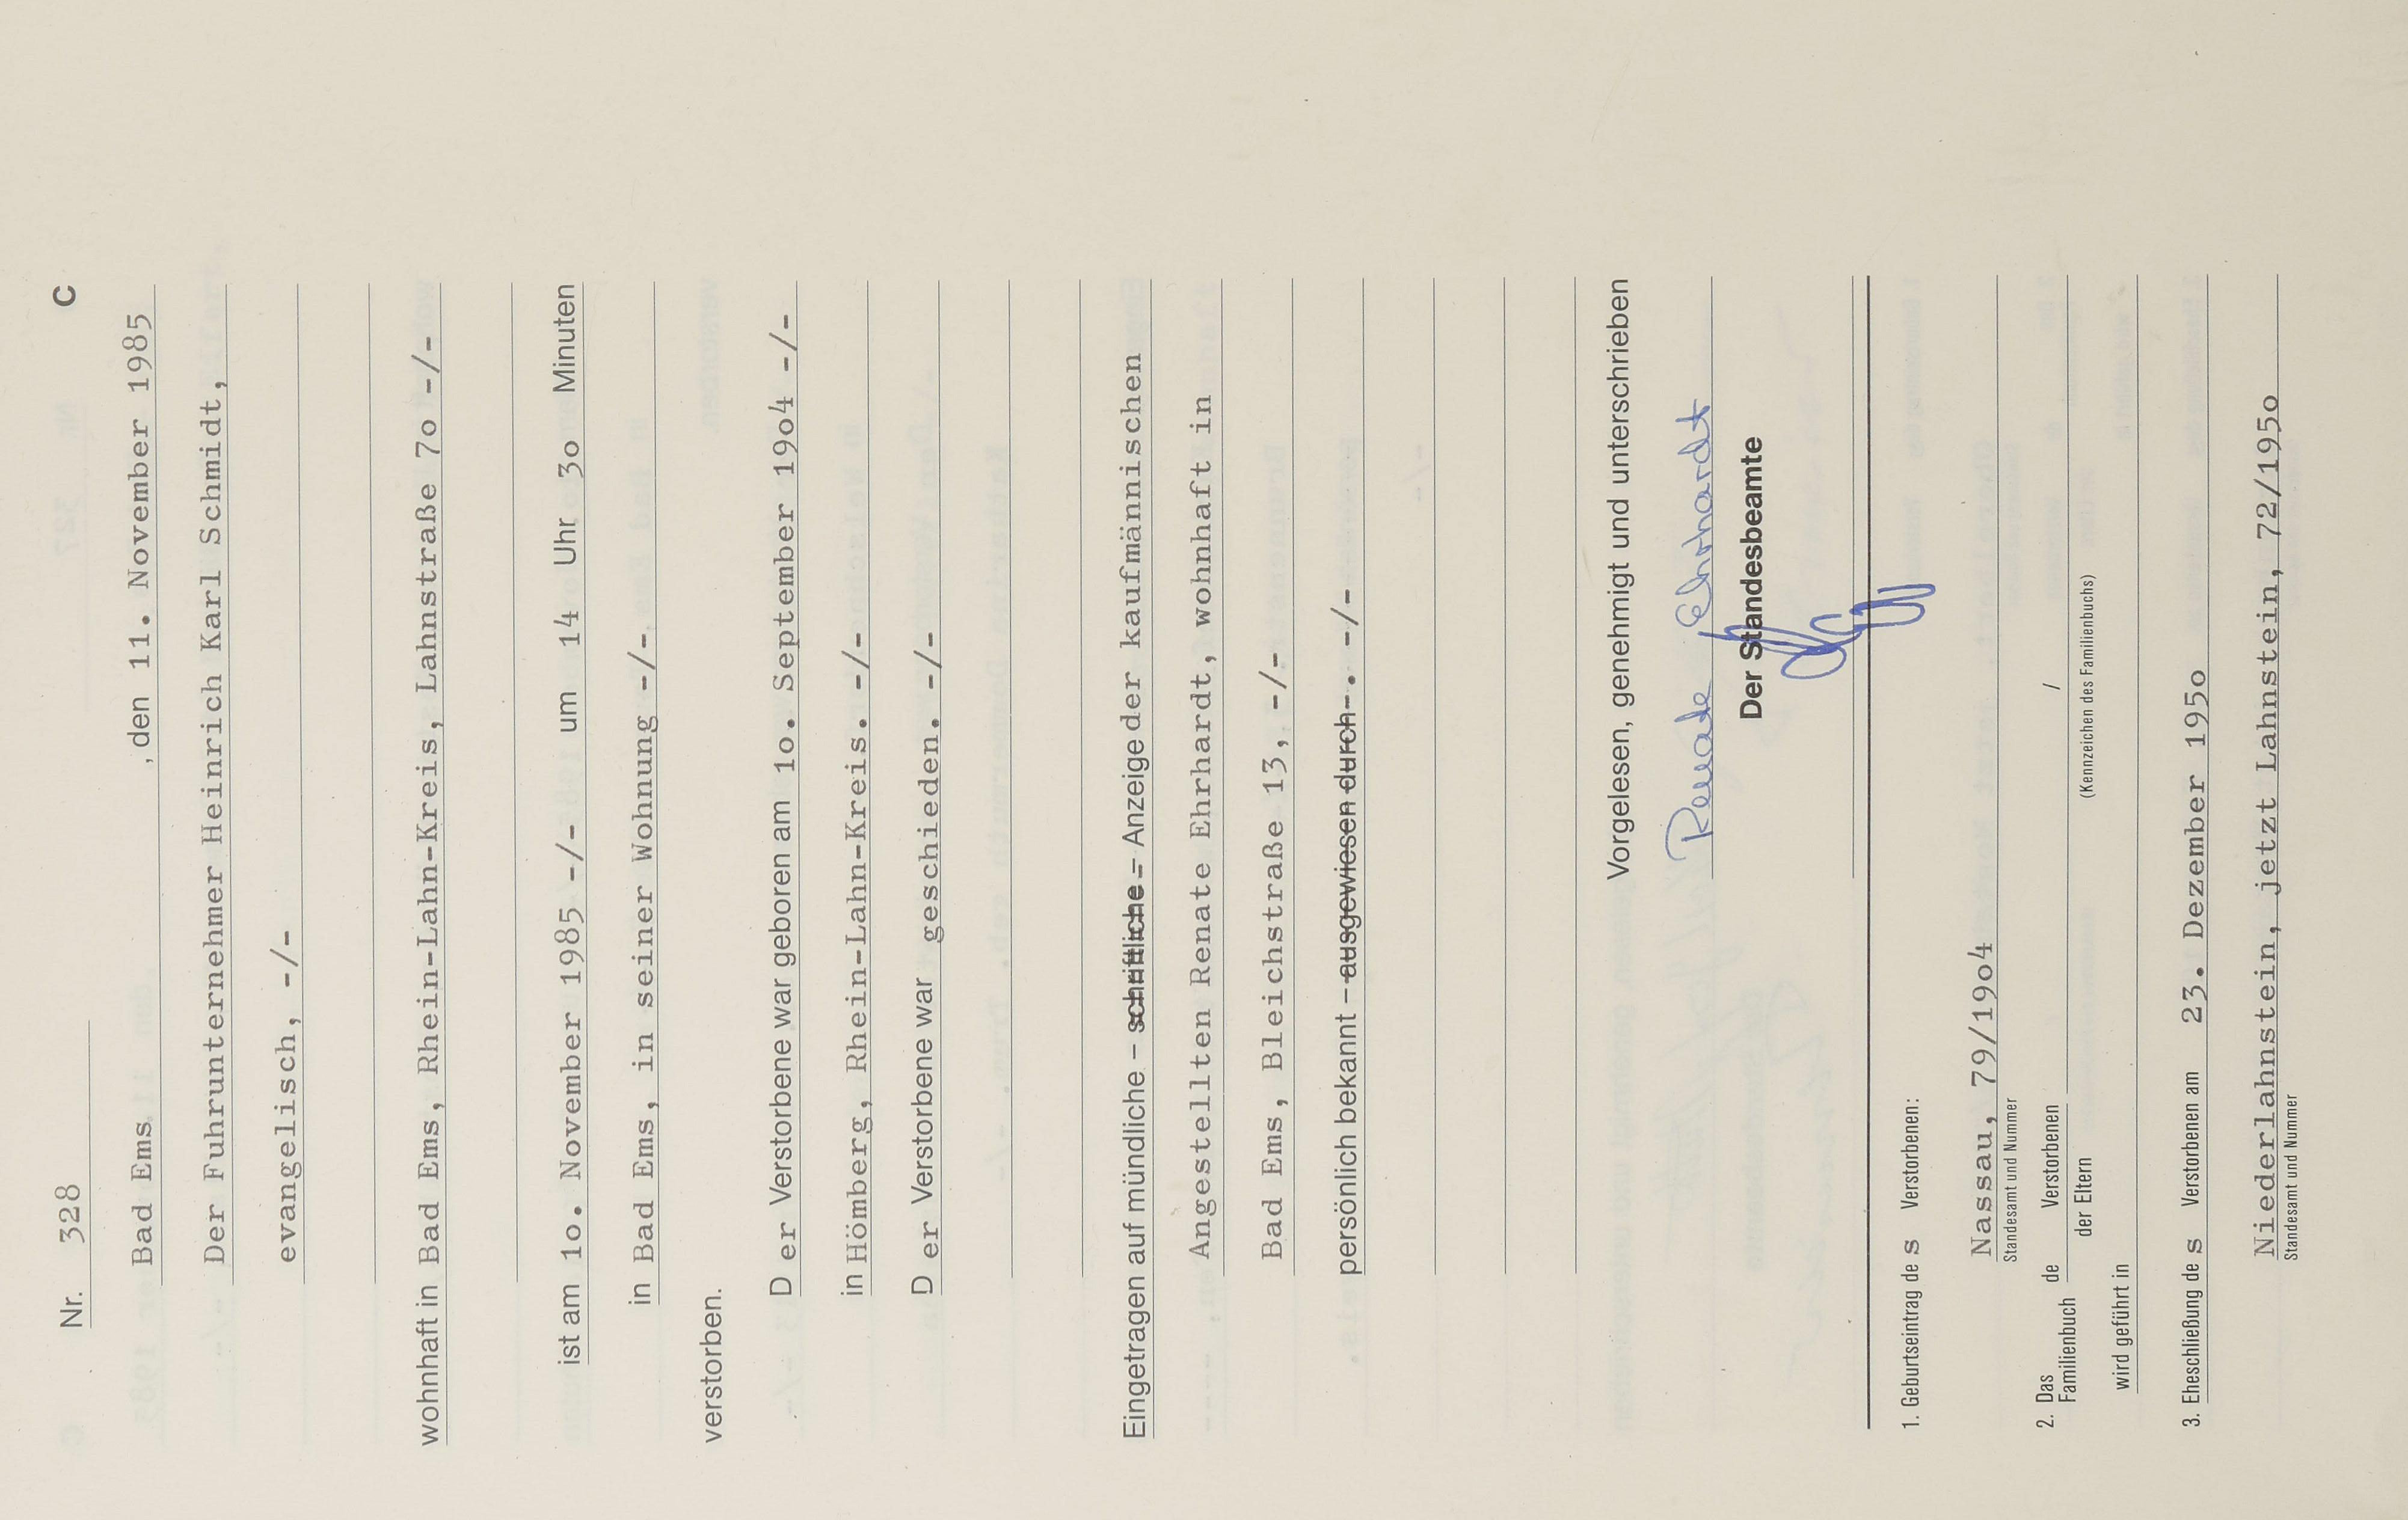 Nr. 328 C
Bad Ems , den 11. November 1985
Der Fuhrunternehmer Heinrich Karl Schmidt,
evangelisch, -/-
wohnhaft in Bad Ems, Rhein-Lahn-Kreis, Lahnstraße 7o -/-
ist am 1o. November 1985 -/- um 14 Uhr 3o Minuten
in Bad Ems, in seiner Wohnung -/-
verstorben.
D er Verstorbene war geboren am 1o. September 19o4 -/-
in Hömberg, Rhein-Lahn-Kreis. -/-
D er Verstorbene war geschieden. -/-
Eingetragen auf mündliche – schriftliche – Anzeige der kaufmännischen
Angestellten Renate Ehrhardt, wohnhaft in
Bad Ems, Bleichstraße 13, -/-
persönlich bekannt – ausgewiesen durch -. -/-
Vorgelesen, genehmigt und unterschrieben
Renate Ehrhardt
Der Standesbeamte
1. Geburtseintrag de s Verstorbenen:
Nassau, 79/19o4
Standesamt und Nummer
2. Das Familienbuch de Verstorbenen /
der Eltern (Kennzeichen des Familienbuchs)
wird geführt in
3. Eheschließung de s Verstorbenen am 23. Dezember 195o
Niederlahnstein, jetzt Lahnstein, 72/195o
Standesamt und Nummer